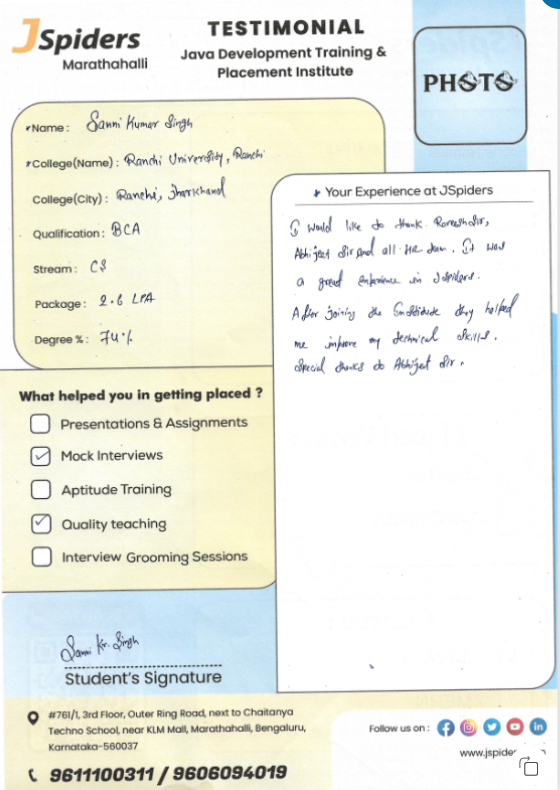 JSpiders
Marathahalli
TESTIMONIAL
Java Development Training &
Placement Institute
PHOTO
*Name: Sanni Kumar Singh
*College(Name): Ranchi University, Ranchi
College(City): Ranchi, Jharkhand
Qualification: BCA
Stream: CS
Package: 2.6 LPA
Degree %: 74%
Your Experience at JSpiders
I would like to thank Sir,
Abhijeet Sir and all HR team. It was
a great experience in Jspiders.
After joining the Institute they helped
me improve my technical skills.
Special thanks to Abhijeet Sir.
What helped you in getting placed ?
Presentations & Assignments
Mock Interviews
Aptitude Training
Quality teaching
Interview Grooming Sessions
Sanni Kr. Singh
Student's Signature
#761/1, 3rd Floor, Outer Ring Road, next to Chaitanya
Techno School, near KLM Mall, Marathahalli, Bengaluru,
Karnataka-560037
9611100311 / 9606094019
Follow us on :
www.jspide